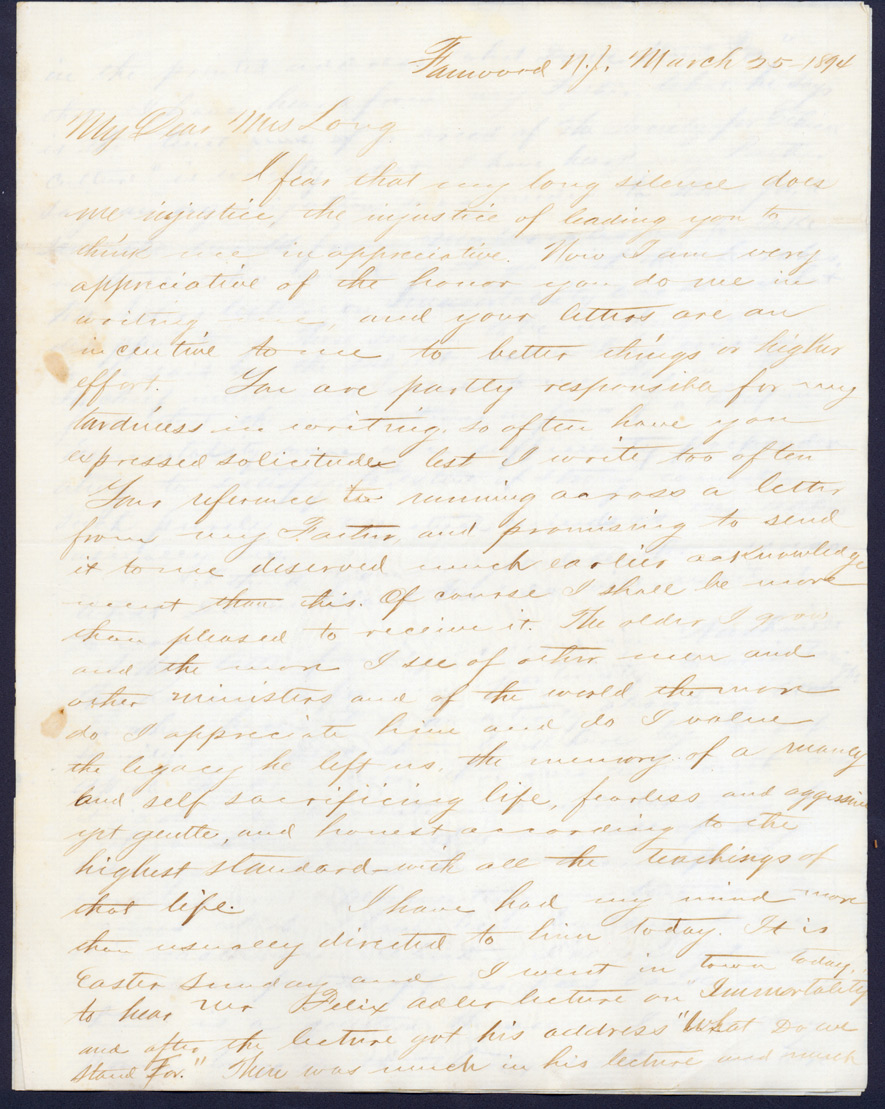 Fanwood N.J. March 25 - 1894
My Dear Mrs Long
I fear that my long silence does
me injustice, the injustice of leading you to
think me inappreciative. Now I am very
appreciative of the honor you do me in
writing me, and your letters are an
incentive to me to better things or higher
effort. You are partly responsible for my
tardiness in writing, so often have you
expressed solicitude lest I write too often
Your referance to running across a letter
from my Father, and promising to send
it to me deserved much earlier acknowledge
ment than this. Of course I shall be more
than pleased to receive it. The older I grow
and the more I see of other men and
other ministers and of the world the more
do I appreciate him and do I value
the legacy he left us, the memory of a manly
and self sacrificing life, fearless and aggressive
yet gentle, and honest according to the
highest standard - with all the teachings of
that life. I have had my mind more
than usually directed to him today. It is
Easter Sunday and I went in town today,
to hear Mr Felix Adler lecture on "Immortality
and after the lecture got his address "What Do we
stand For." There was much in his lecture and much